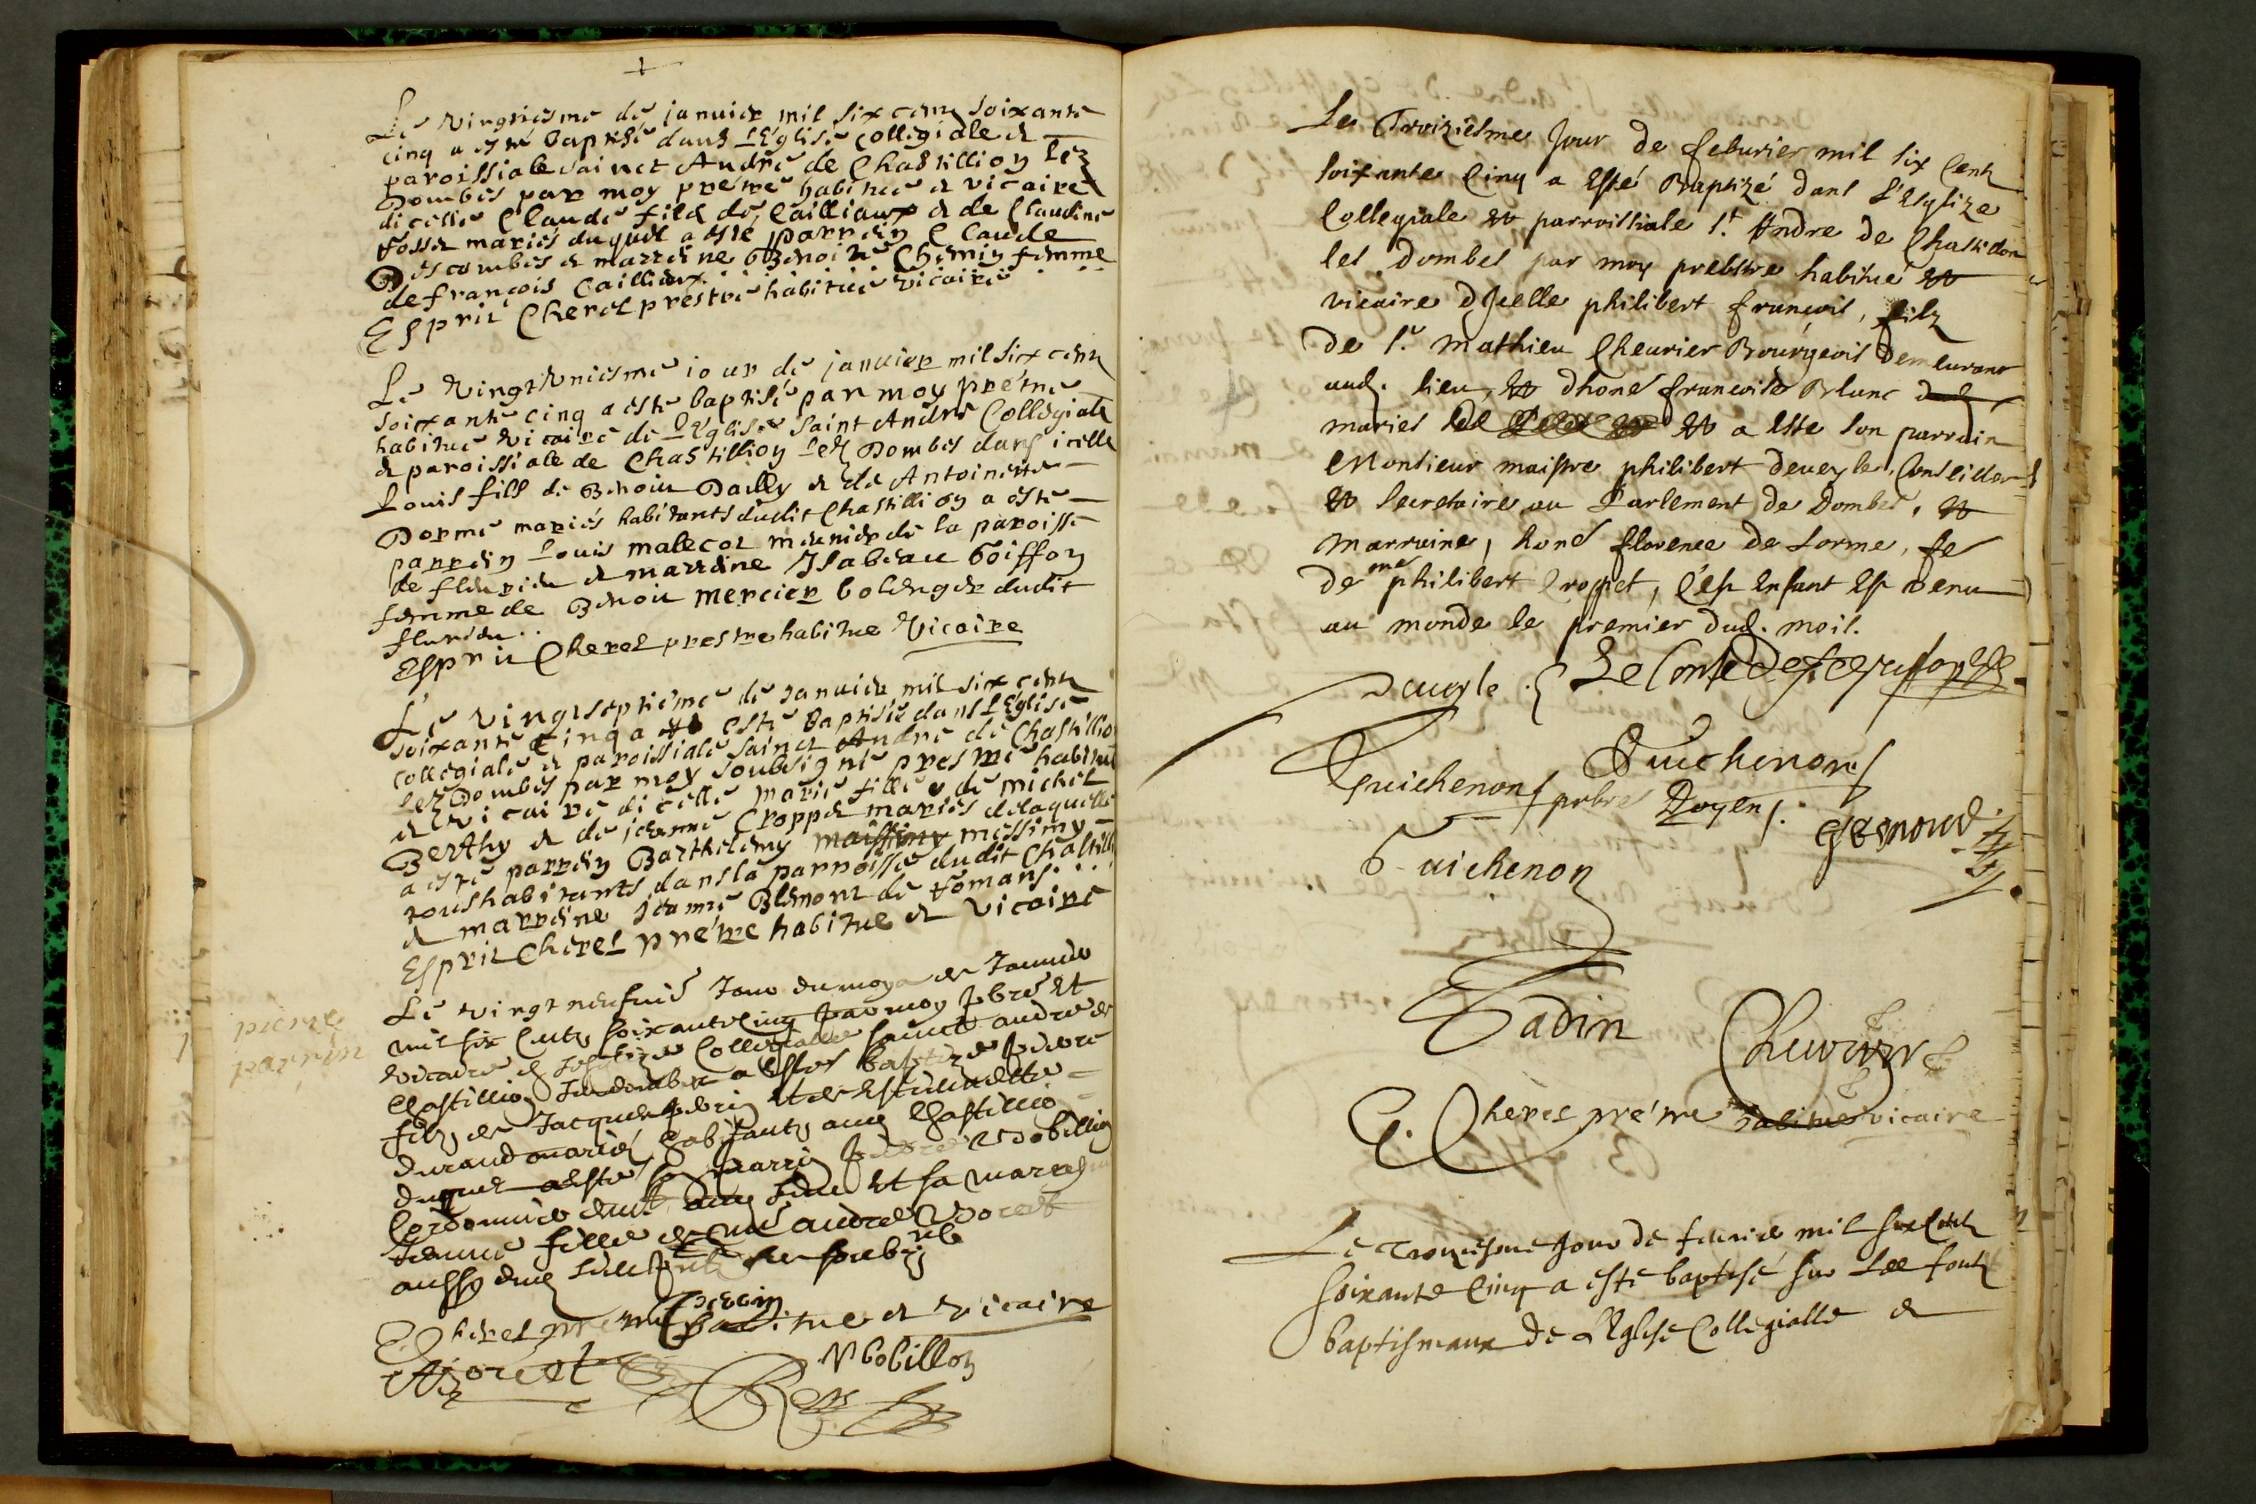 Le vingtiesme de janvier mil six cens soixante
cinq a esté baptisé dans l'Eglise collegiale et
paroissiale sainct André de Chastillion lez
Dombes par moy prêtre habitué et vicaire
dicelle Claude filz de Cailliaux et de Claudine
mariés duquel a esté parrein Claude
Descombes et marreine Benoite Chemin femme
de françois Cailliaux.
Esprit Cherel prestre habitué vicaire
Le vingtuniesme iour de janvier mil six cens
soixante cinq a esté baptisé par moy prétre
habitué vicaire de l'Eglise saint André Collegiale
et paroissiale de Chastillion lez Dombes dans icelle
Louis fils de Benoit Dailly et de Antoinette
Dorme mariés habitants dudit Chastillion a esté
parrein Louis malecot meunier de la paroisse
de fleurieu et marreine Isabeau boisson
femme de Benoit mercier bolenger dudit
flurieu..
Esprit Cherel prestre habitué Vicaire
Le vingtseptiéme de Janvier mil six cens
soixante cinq a esté baptisée dans l'Eglise
collegiale et paroissiale sainct André de Chastillio
lez Dombes par moy soubsigné prestre habitué
et vicaire dicelle marie fille de michel
Berthy et de jeanne Croppet mariés delaquelle
a esté parrein Barthelemy messimy
tous habitants dans la parroisse dudit Chastill
et marreine jeanne Blemont de Romans...
Esprit Cherel prétre habitué et vicaire
pierre
parrin
Le vingt neufuie Jour du moys de Januie
mil six cents soixante cinq par moy pbre et
vicaire en Collegialle sainct andre de
Chastillion a esté baptizé pierre
filz de Jacques perrin et de
durand mariés habitants aud Chastillio
duquel a esté parrin pierre Bobillion
Cordonnier et sa marreine
Jeanne fille de andre Moret
aussy
Perrin
E Cherel prétre habitué et vicaire
Moret
Bobillon
Le Troiziesme Jour de feburier mil six Cent
soixante Cinq a Esté Baptizé dans l'Esglize
Collegiale et parroissiale St. Andre de Chastillon
les Dombes par moy prebstre habitué et
vicaire d'Jcelle philibert françois, filz
de Sr. Mathieu Cheurier Bourgeois demeurant
aud. lieu, et dhone francoise Blanc
maries et a esté son parrain
Monsieur maistre philibert deueyle, Conseiller
et secretaire au Parlement de Dombes, et
Marraine, hone florence de Lorme, fe
de me philibert Croppet, C'est Enfant Est venu
au monde le premier dud. mois.
Deueyle Le Comte de
Guichenon
Guichenon pbre Doyen.
Genoud
Guichenon
Tadin
Cheurier
E. Cherel prétre habitué vicaire
Le Troiziesme Jour de feurier mil six Cent
soixante Cinq a esté baptisé sur Les fonts
baptismaux de L'Eglise Collegialle et